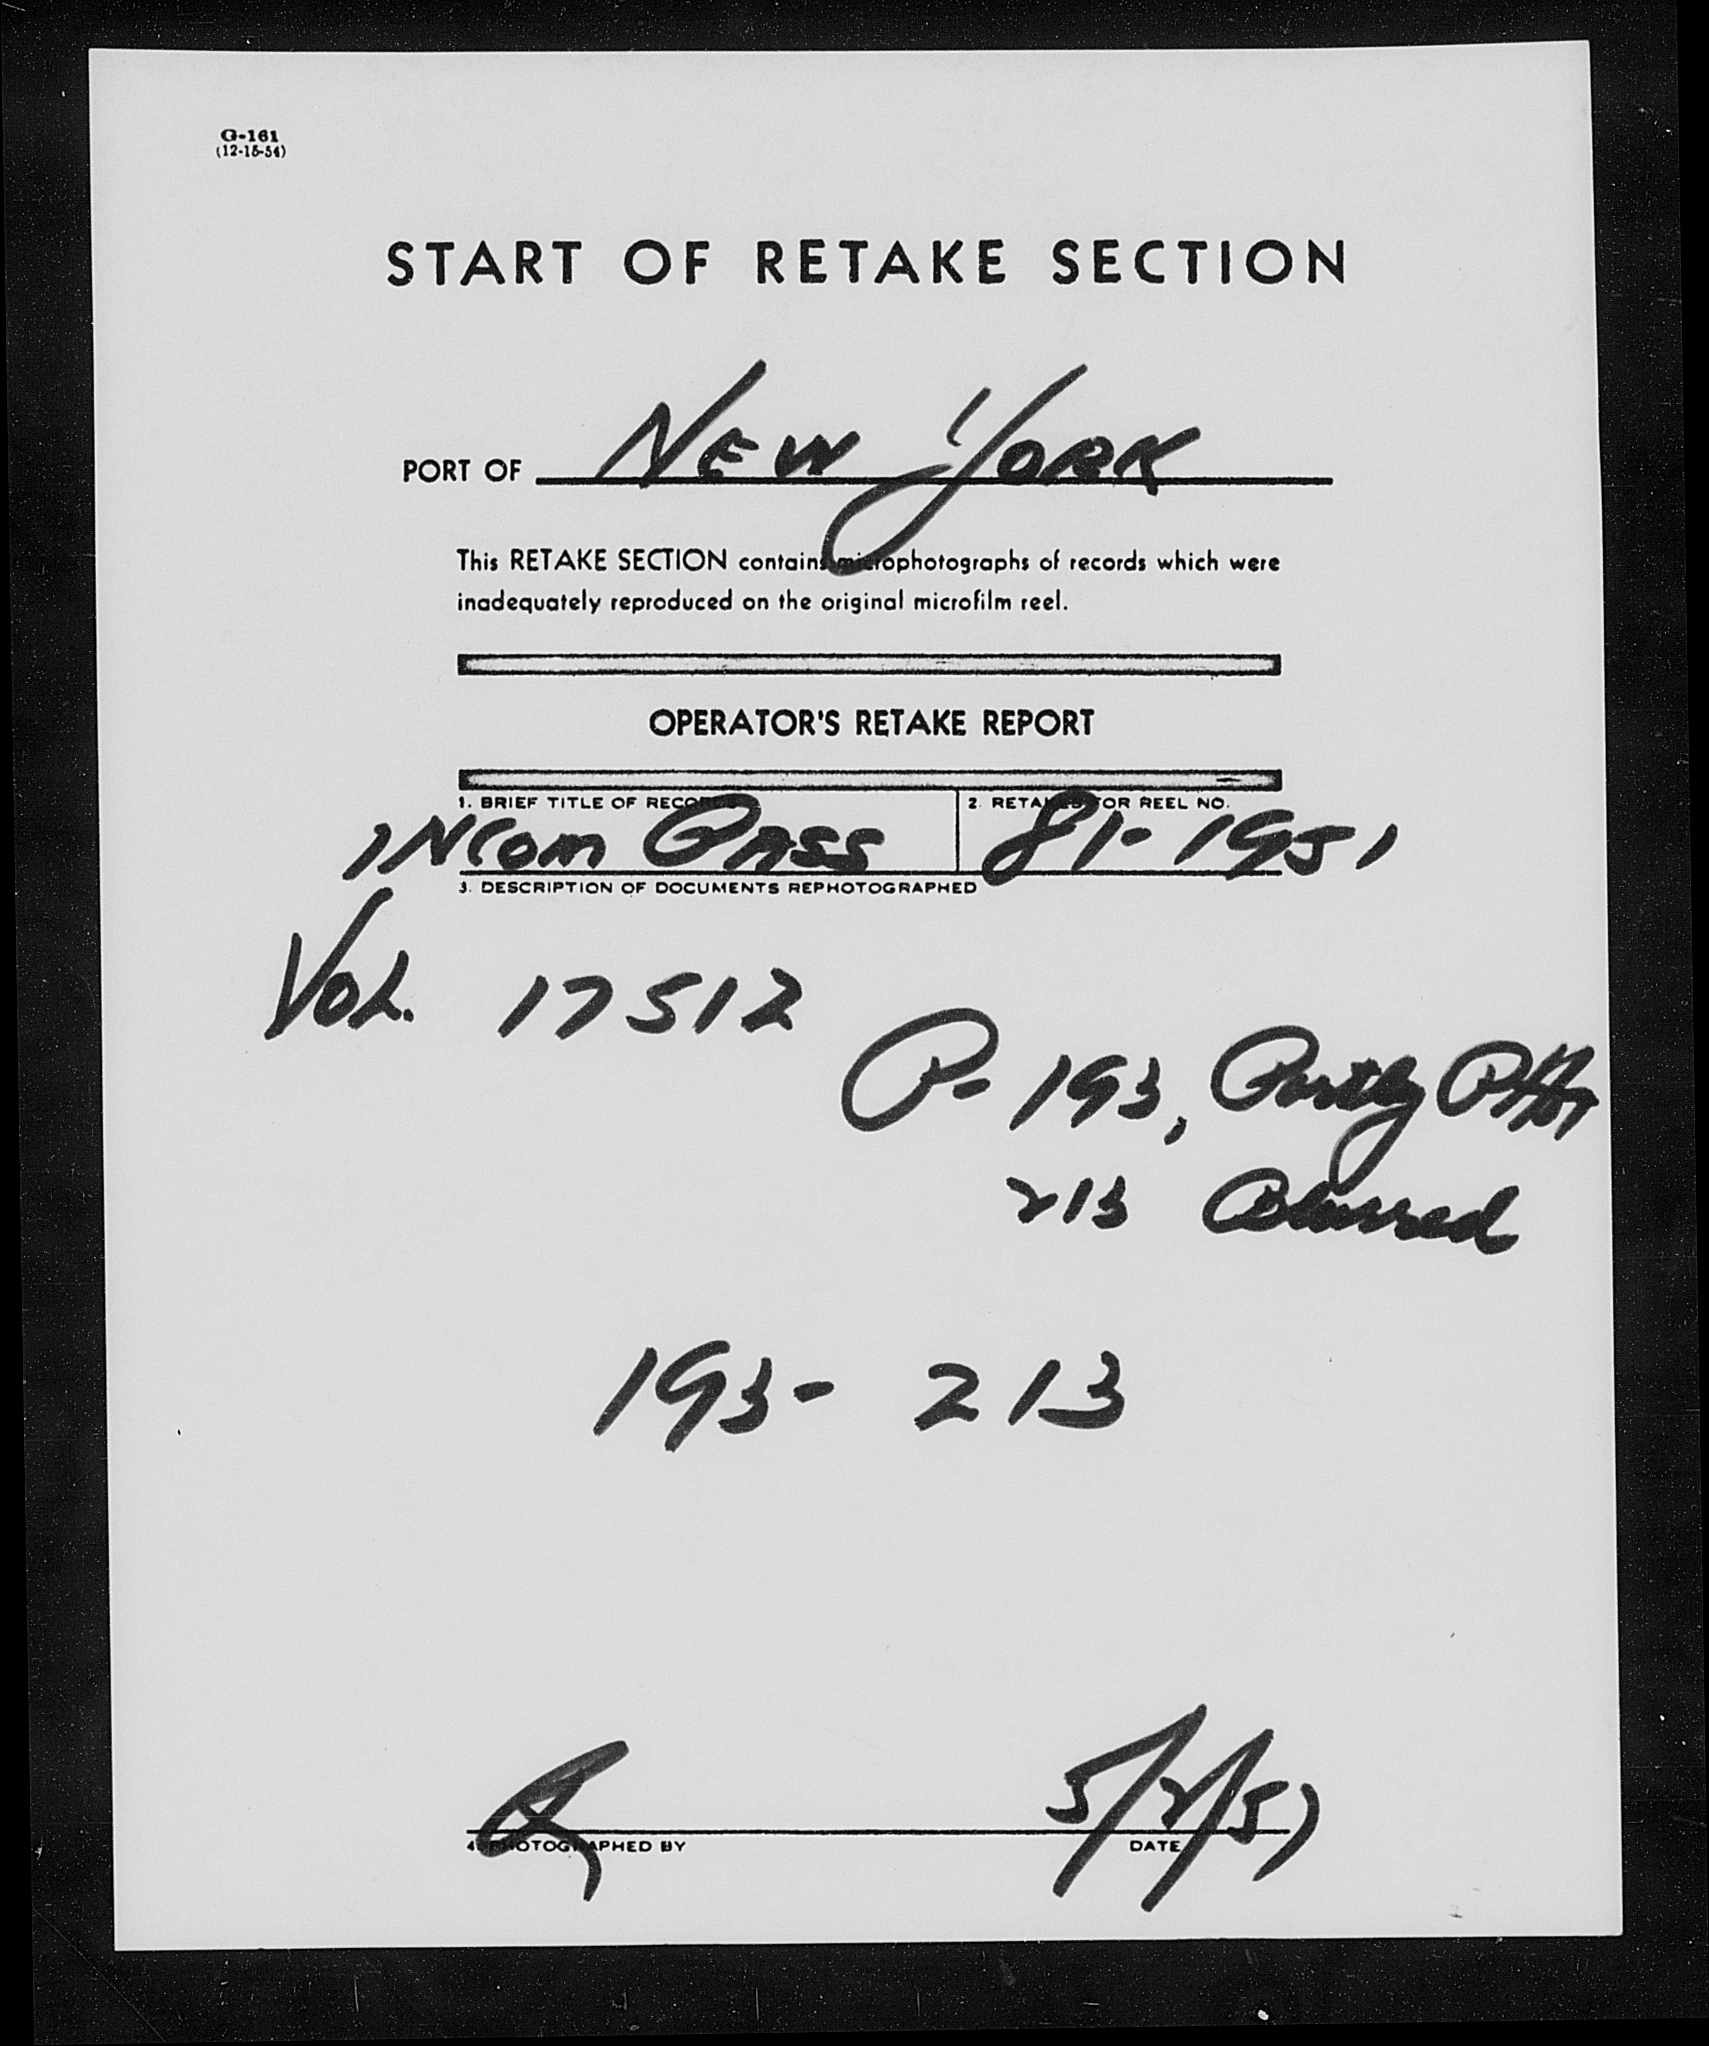 G-161
(12-15-54)
START OF RETAKE SECTION
PORT OF NEW YORK
This RETAKE SECTION contains microphotographs of records which were
inadequately reproduced on the original microfilm reel.
OPERATOR'S RETAKE REPORT
1. BRIEF TITLE OF RECORDS
2. RETAKES FOR REEL NO.
INCom PASS 81-1951
3. DESCRIPTION OF DOCUMENTS REPHOTOGRAPHED
VOL. 17512
P- 193, Partly
213 Blurred
193- 213
5/2/57
4. PHOTOGRAPHED BY
DATE